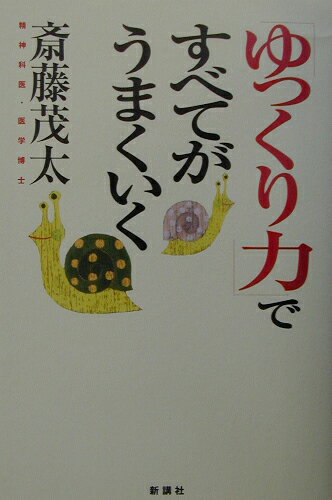 「ゆっくり力」で
すべてが
うまくいく
斎藤茂太
精神科医・医学博士
新講社